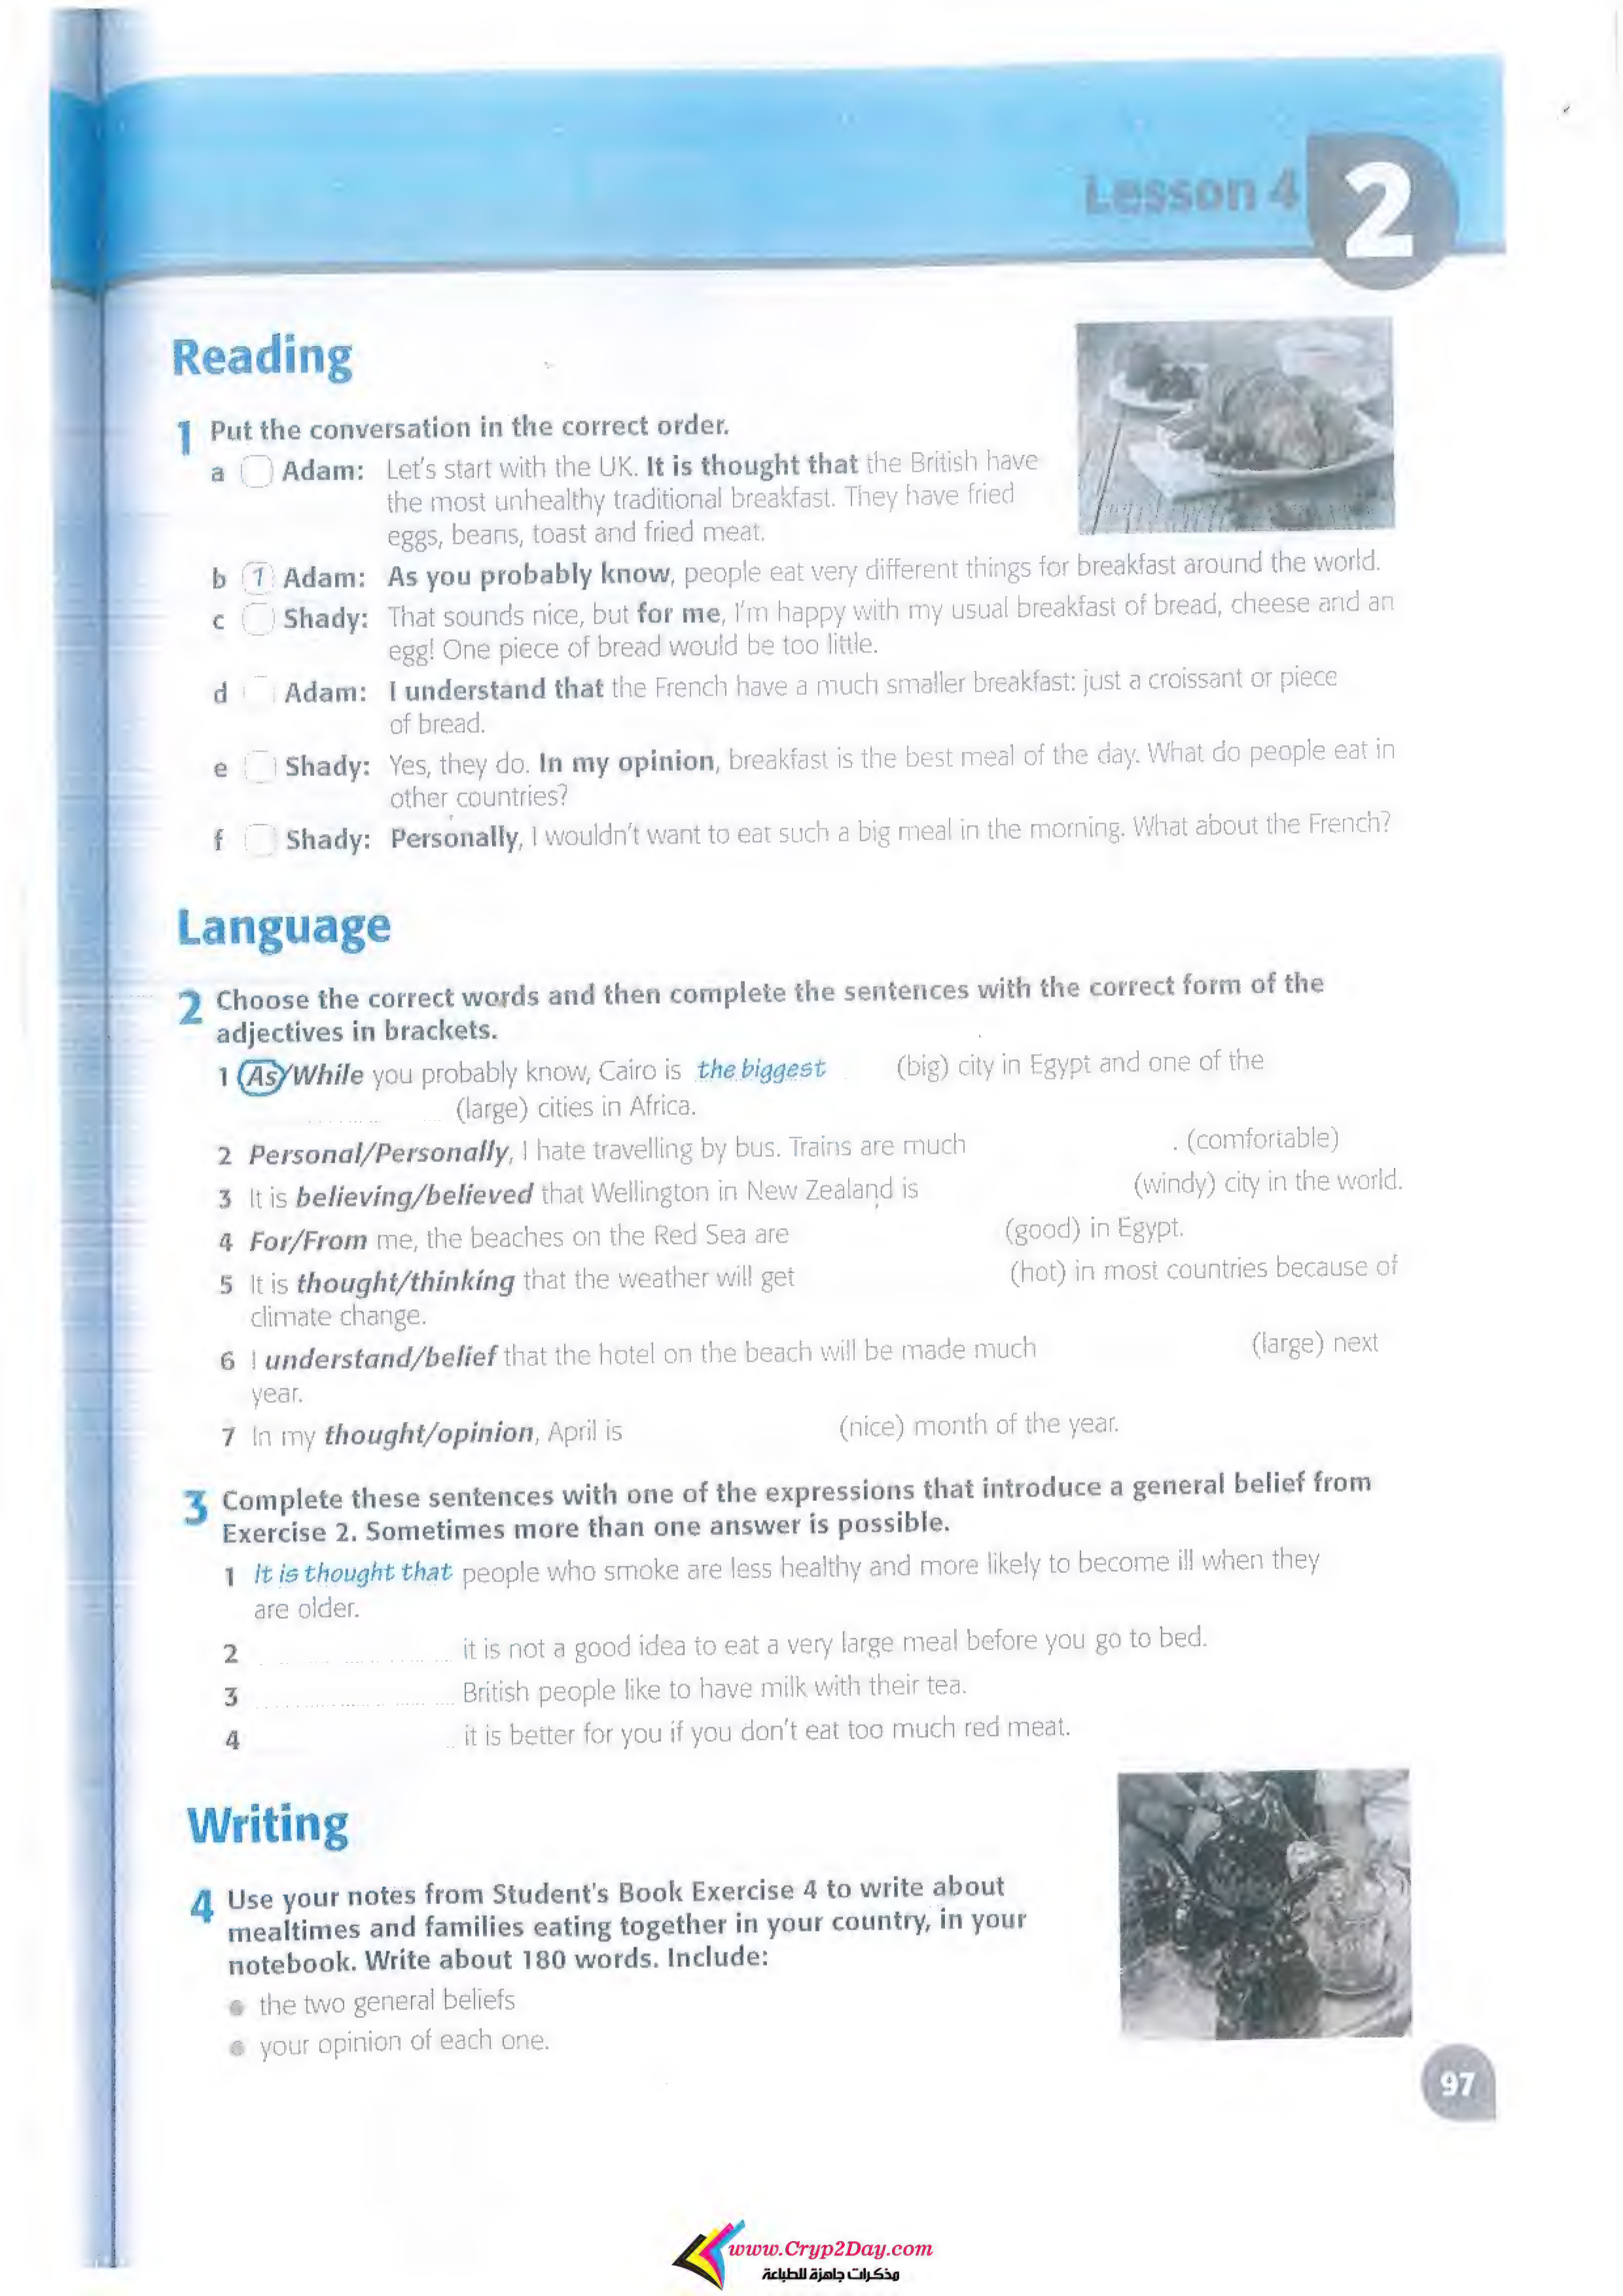 Lesson 4 2
Reading
1 Put the conversation in the correct order.
a Adam: Let's start with the UK. It is thought that the British have
the most unhealthy traditional breakfast. They have fried
eggs, beans, toast and fried meat.
b 1 Adam: As you probably know, people eat very different things for breakfast around the world.
c Shady: That sounds nice, but for me, I'm happy with my usual breakfast of bread, cheese and an
egg! One piece of bread would be too little.
d Adam: I understand that the French have a much smaller breakfast: just a croissant or piece
of bread.
e Shady: Yes, they do. In my opinion, breakfast is the best meal of the day. What do people eat in
other countries?
f Shady: Personally, I wouldn't want to eat such a big meal in the morning. What about the French?
Language
2 Choose the correct words and then complete the sentences with the correct form of the
adjectives in brackets.
1 As/While you probably know, Cairo is the biggest (big) city in Egypt and one of the
(large) cities in Africa.
2 Personal/Personally, I hate travelling by bus. Trains are much . (comfortable)
3 It is believing/believed that Wellington in New Zealand is (windy) city in the world.
4 For/From me, the beaches on the Red Sea are (good) in Egypt.
5 It is thought/thinking that the weather will get (hot) in most countries because of
climate change.
6 I understand/belief that the hotel on the beach will be made much (large) next
year.
7 In my thought/opinion, April is (nice) month of the year.
3 Complete these sentences with one of the expressions that introduce a general belief from
Exercise 2. Sometimes more than one answer is possible.
1 It is thought that people who smoke are less healthy and more likely to become ill when they
are older.
2 it is not a good idea to eat a very large meal before you go to bed.
3 British people like to have milk with their tea.
4 it is better for you if you don't eat too much red meat.
Writing
4 Use your notes from Student's Book Exercise 4 to write about
mealtimes and families eating together in your country, in your
notebook. Write about 180 words. Include:
• the two general beliefs
• your opinion of each one.
97
www.Cryp2Day.com
مذكرات جاهزة للطباعة